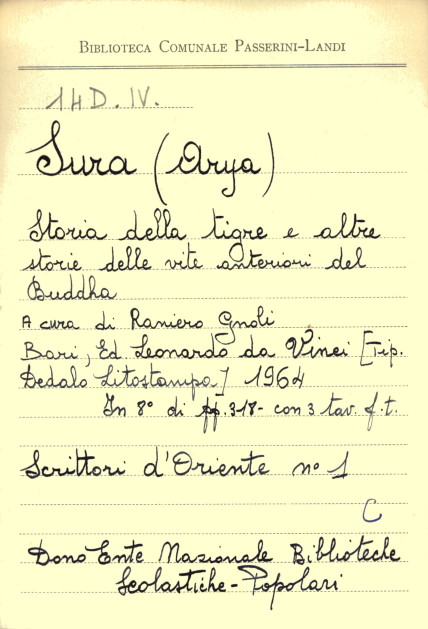 BIBLIOTECA COMUNALE PASSERINI-LANDI
14D.IV.
Sura (Arya)
Storia della tigre e altre
storie delle vite anteriori del
Buddha
A cura di Raniero Gnoli
Bari, Ed. Leonardo da Vinci [Tip.
Dedalo Litostampa] 1964
In 8° di pp. 318 - con 3 tav. f.t.
Scrittori d'Oriente n° 1
C
Dono Ente Nazionale Biblioteche
Scolastiche-Popolari